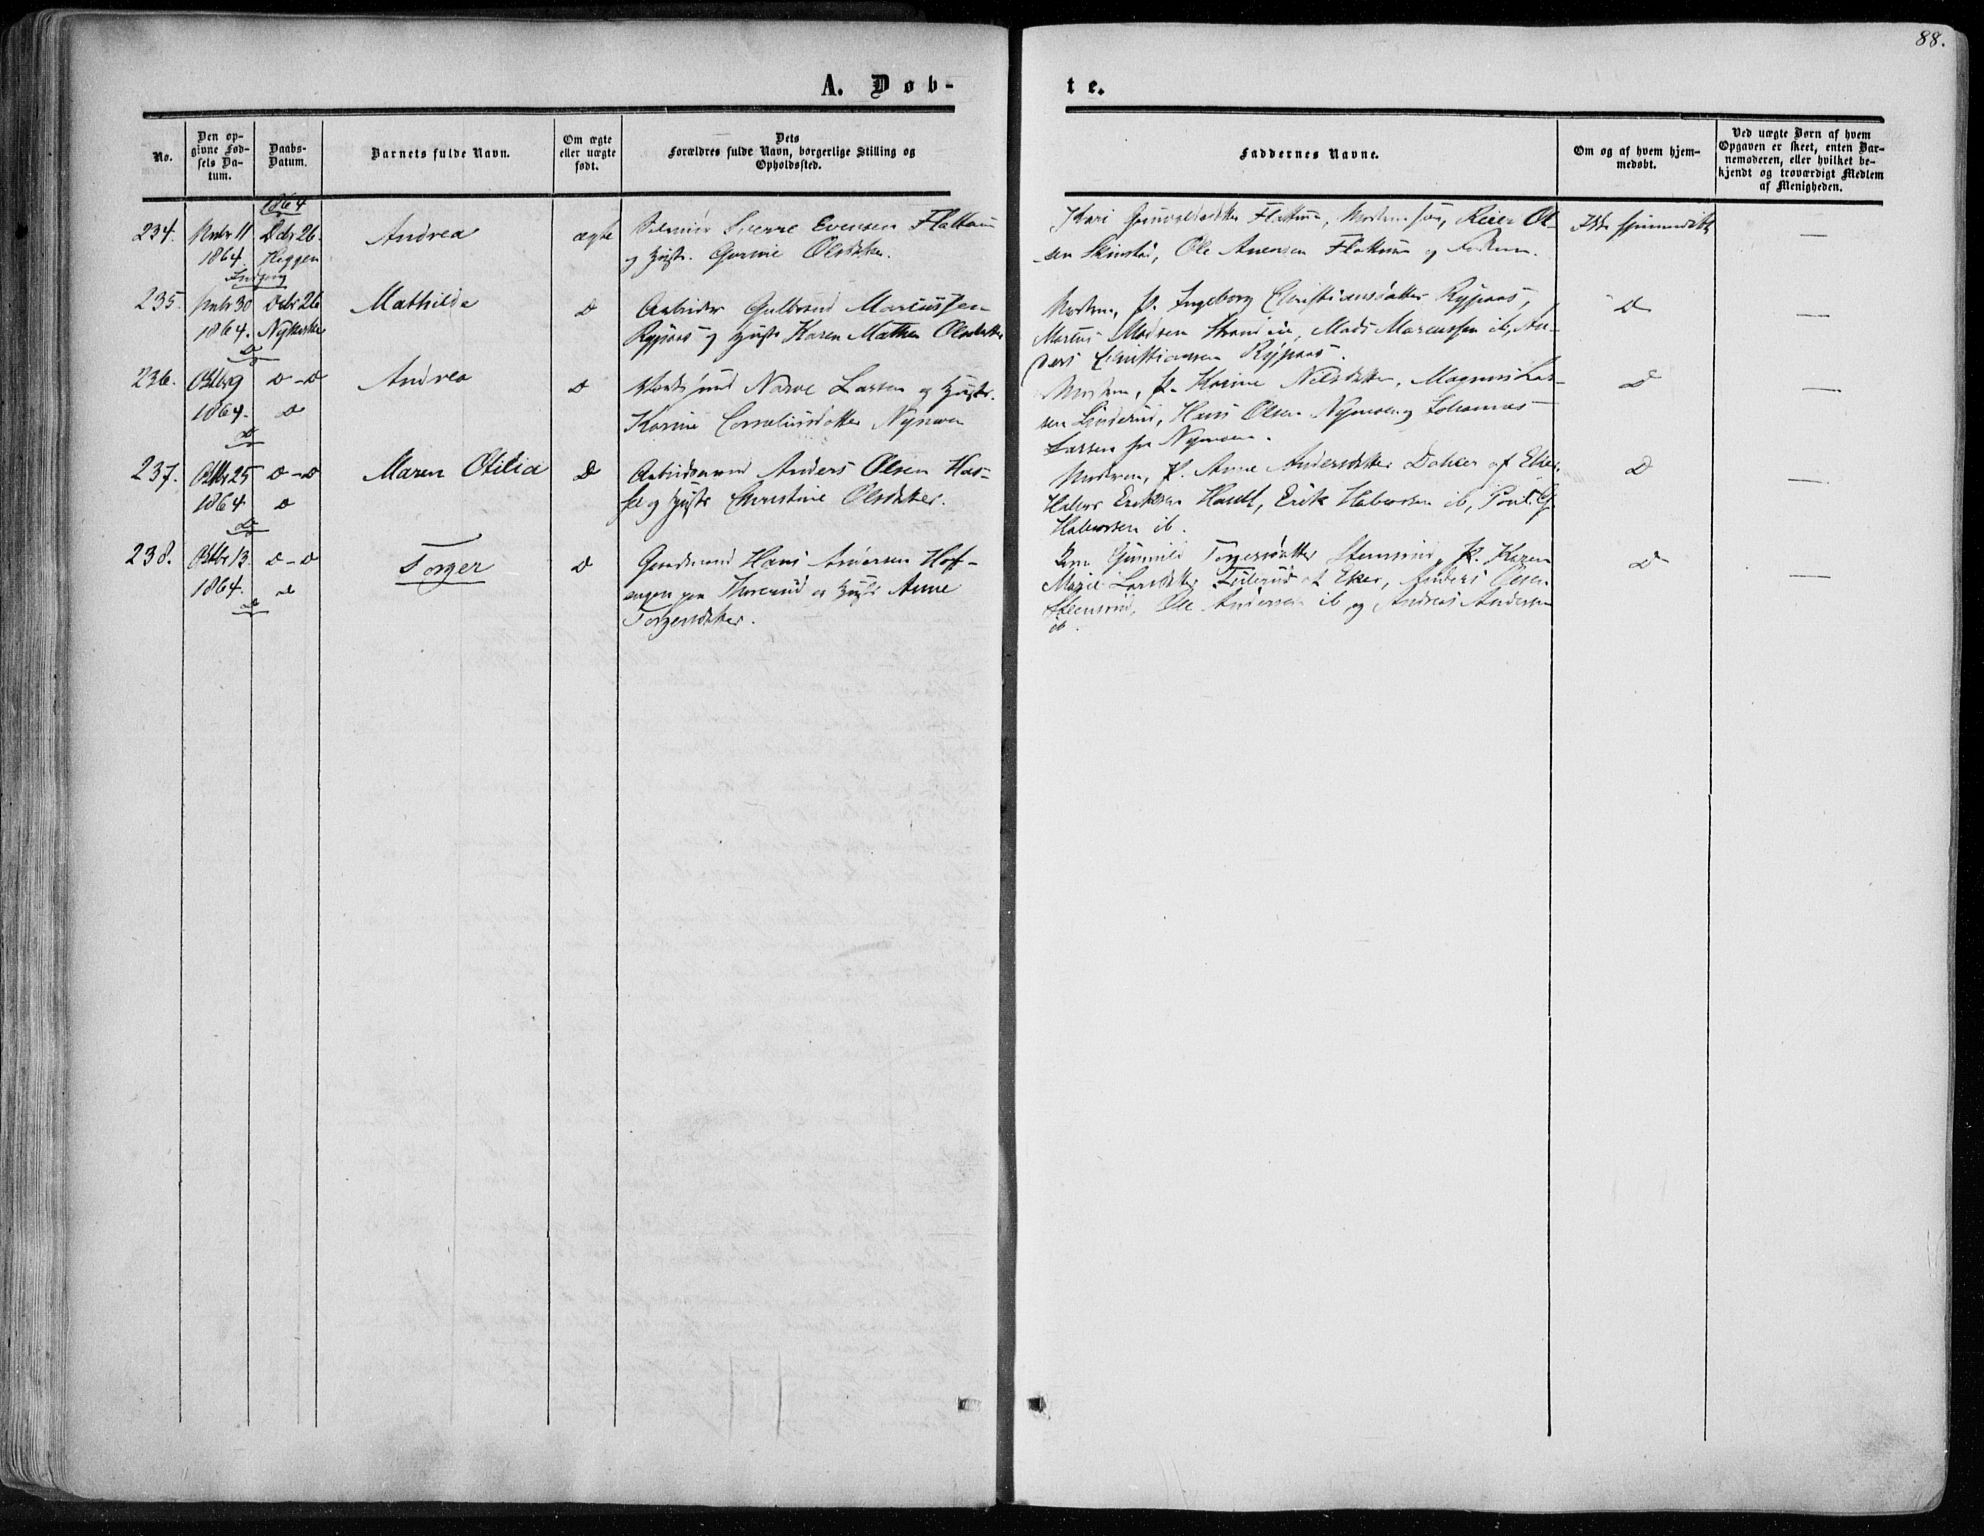 88.
A. Døb-
te.
No.
Den op-
givne Fød-
sels Da-
tum.
Daabs-
Datum.
Barnets fulde Navn.
Om ægte
eller uægte
født.
Dets
Forældres fulde Navn, borgerlige Stilling og
Opholdssted.
Faddernes Navne.
Om og af hvem hjem-
medøbt.
Ved uægte Børn af hvem
Opgaven er skeet, enten Bar-
nemoderen, eller hvilket be-
kjendt og troværdigt Medlem
af Menigheden.
1864
234.
Nvbr 11
1864.
Dcbr 26.
Heggen
Andrea
ægte
Sverre Evensen Flattum
og Hustr. Gurine Olsdatter.
Kari Gunvoldsdatter Flattum, Reier Ol-
sen Skinstad, Ole Andersen Flattum og Faderen.
Ikke hjemmedøbt
—
235.
Nvbr 30
1864.
Dcbr 26
Nykirke
Mathilde
D
Arbeider Gulbrand Marcussen
Rypaas og Hustr Karen Mathea Olsdatter
Moderen, P. Ingeborg Christiansdatter Rypaas,
Marcus Madsen Strande, Mads Marcussen ib, An-
ders Christiansen Rypaas.
D
—
236.
Octbr 9
1864.
D - D
D
Andrea
D
Narve Larsen og Hustr.
Karine Corneliusdatter Nymoen
Moderen, P. Karine Nilsdatter, Magnus Lar-
sen Linderud, Hans Olsen Nymoen og Johannes
Larsen fra Nymoen.
D
—
237.
Octbr 25
1864
D - D
D
Maren Otilia
D
Arbeidsmand Anders Olsen Has-
sel og Hustr Christine Olsdatter.
Moderen, P. Anne Andersdatter Dahler af Eker,
Halvor Eriksen Hassel, Erik Halvorsen ib, Poul
Halvorsen ib.
D
—
238.
Octbr 13
1864.
D - D
D
Torger
D
Gaardmand Hans Andersen Hof-
engen og Hustr Anne
Torgersdatter.
Gunnild Torgersdatter Steensrud, P. Karen
Marie Larsdatter af Eker, Anders Olsen
Steensrud, Ole Andersen ib, og Andreas Andersen
ib.
D
—